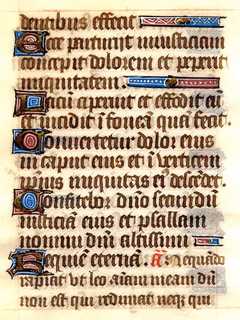 dentibus effecit
Ecce parturiit iniusticiam
concepit dolorem et peperit
iniquitatem.
Lacu aperuit et effodit eū
et incidit ī foueā quā fecit.
Conuertetur dolor eius
in caput eius et ī verticem
ipsius iniquitas eī descēdet.
Confitebor dño secundū
iusticiā eius et psallam
nomini dñi altissimi
Requiē eternā. ā Nequādo
rapiat vt leo aīam meam dū
non est qui redimat neq; qui